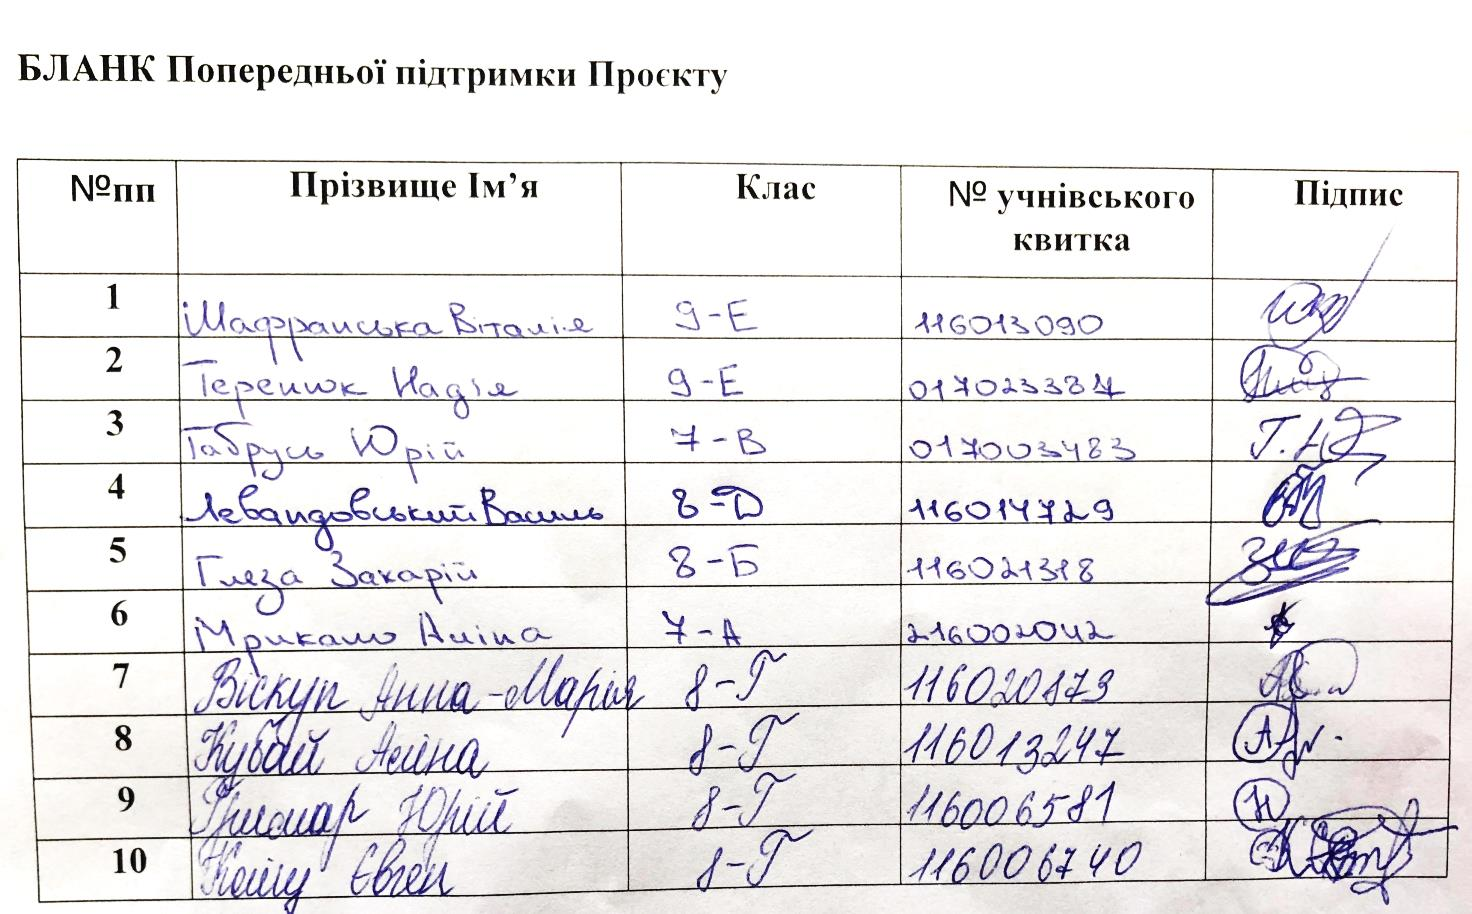 БЛАНК Попередньої підтримки Проєкту
№пп Прізвище Ім’я Клас № учнівського квитка Підпис
1 Шафранська Віталія 9-Е 116013090
2 Теренюк Надія 9-Е
3 Габрусь Юрій 7-В 017003483
4 Левандовський Василь 8-Д 116014729
5 Глеза Захарій 8-Б 116021318
6 Аліна 7-А 216002042
7 Віскуп Анна-Марія 8-Г 116020873
8 Кубай Аліна 8-Г 116013247
9 Юрій 8-Г 116006581
10 Євген 8-Г 116006740